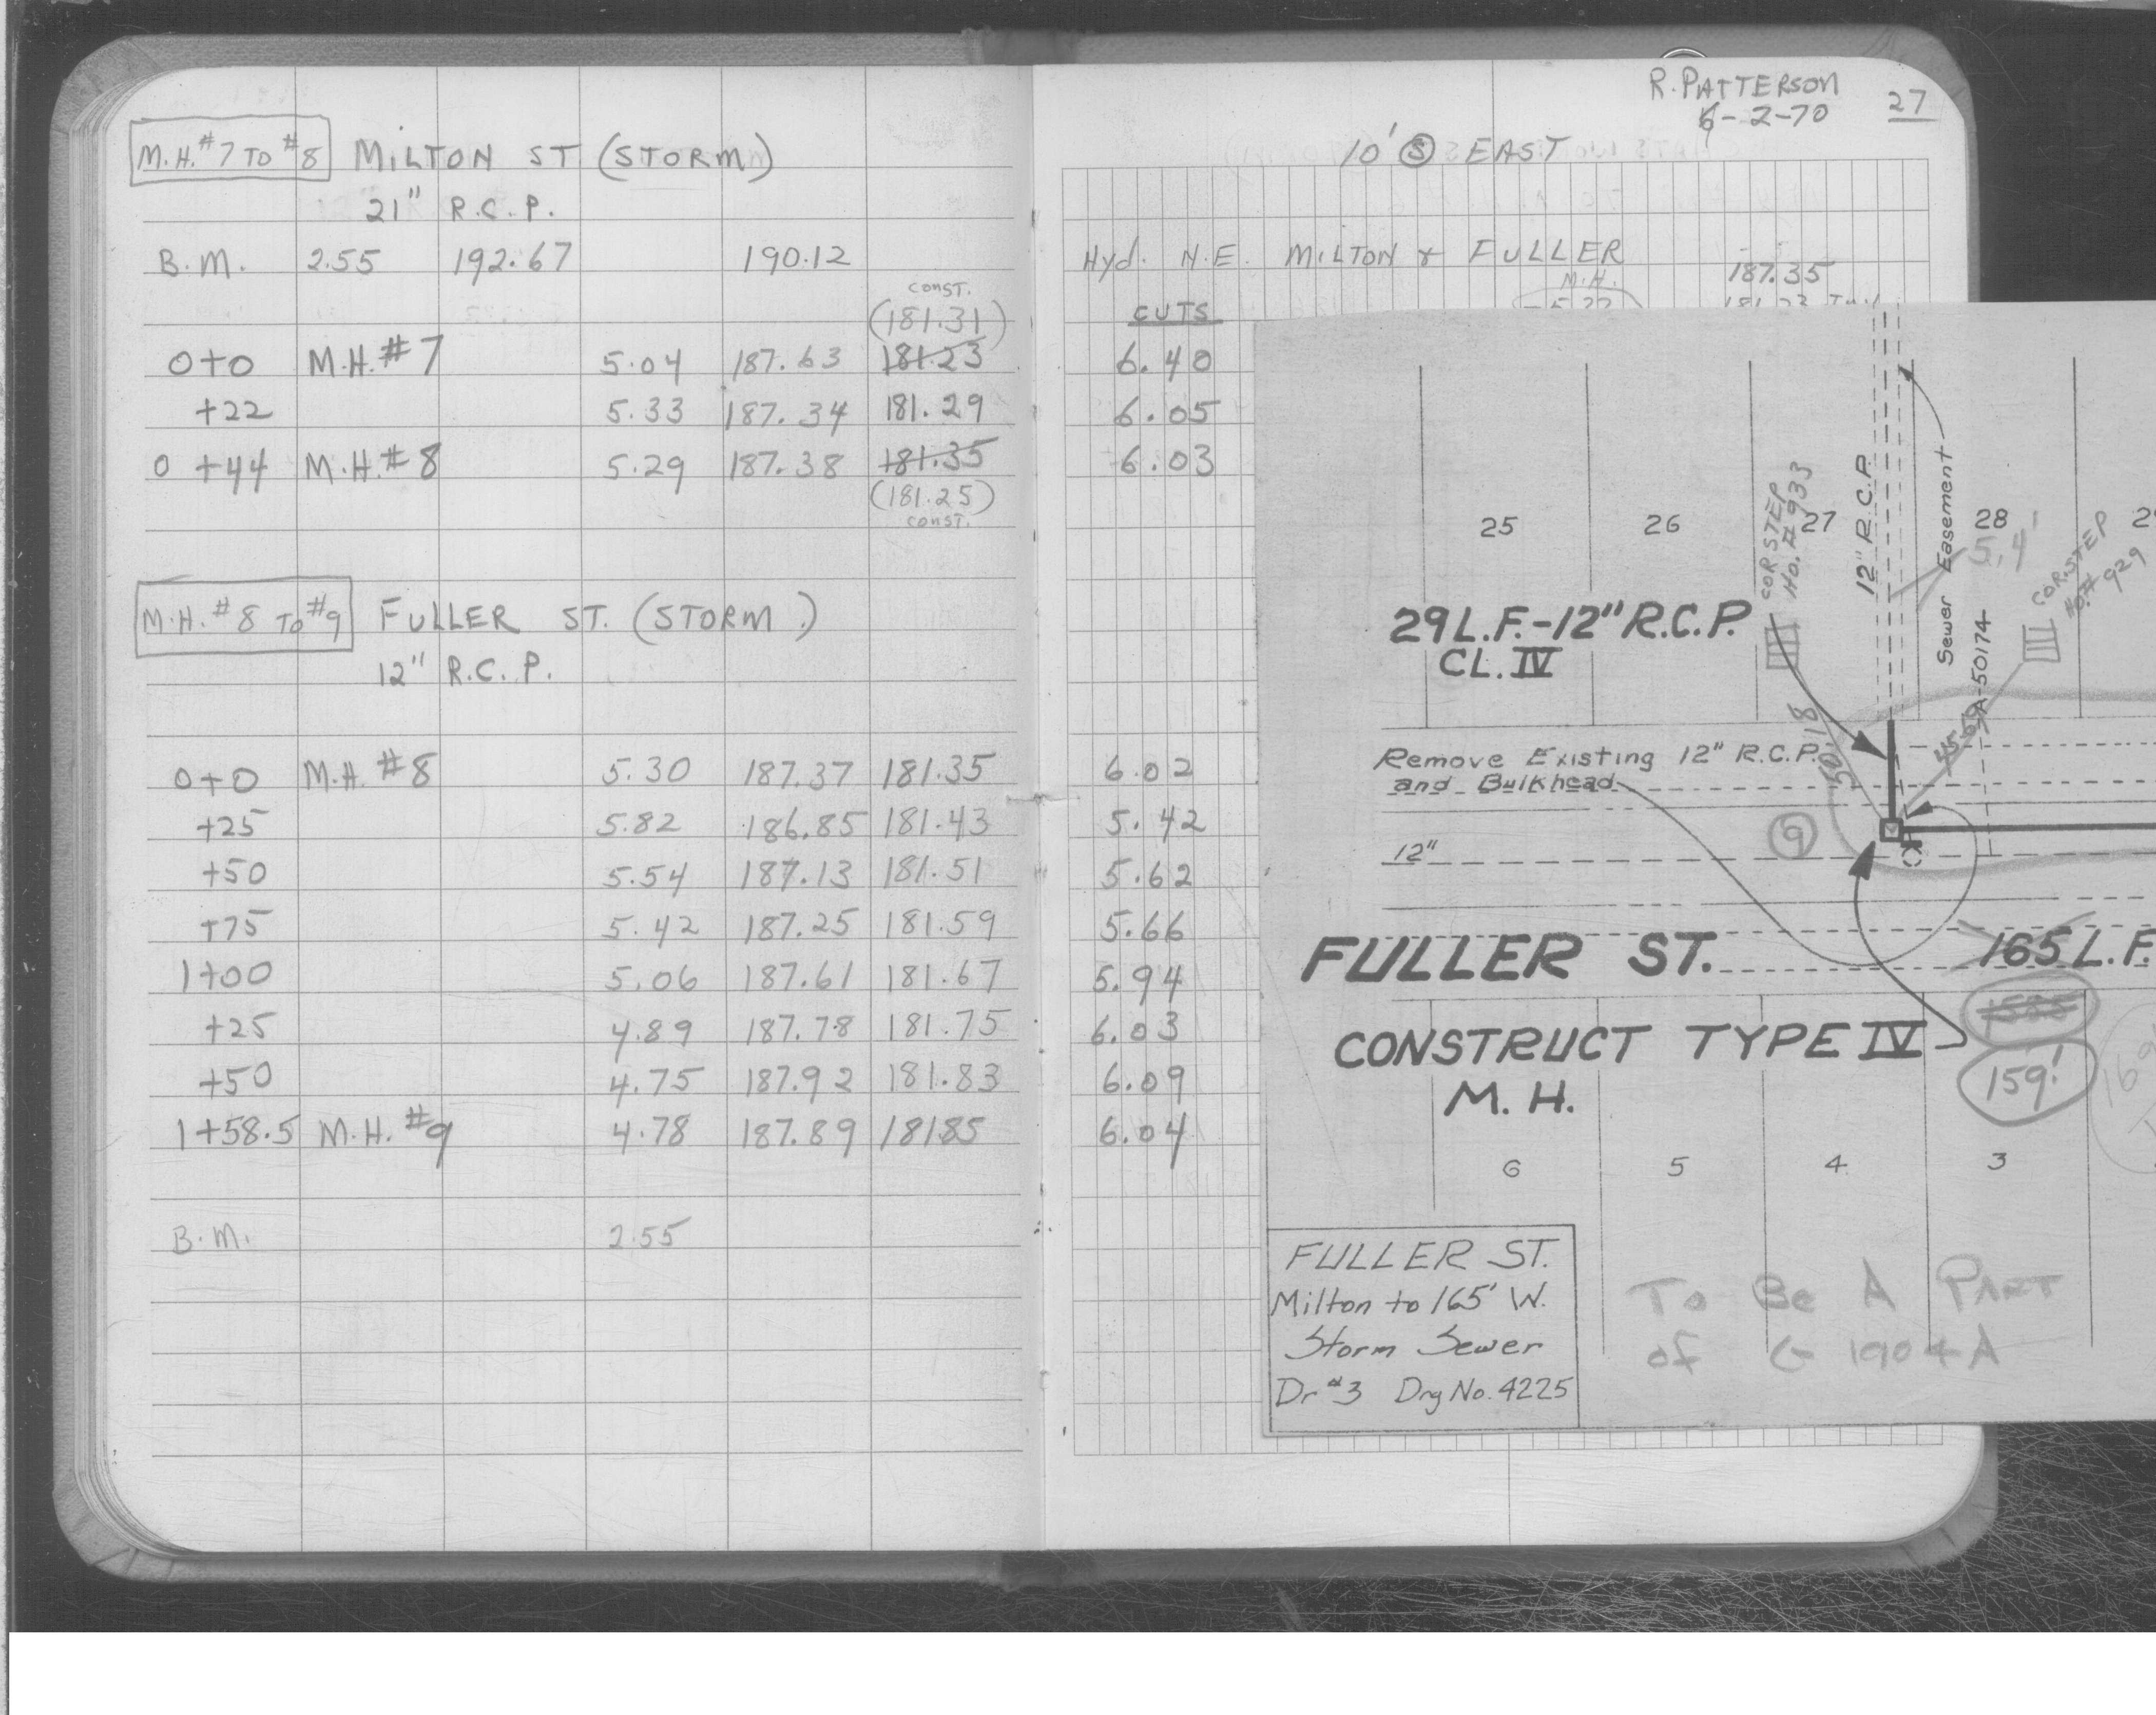 M.H. #7 TO #8 MILTON ST (STORM)
21" R.C.P.
B.M. 2.55 192.67 190.12
CONST.
(181.31)
0+0 M.H. #7 5.04 187.63 181.23
+22 5.33 187.34 181.29
0+44 M.H. #8 5.29 187.38 181.35
(181.25)
CONST.
M.H. #8 TO #9 FULLER ST. (STORM)
12" R.C.P.
0+0 M.H. #8 5.30 187.37 181.35
+25 5.82 186.85 181.43
+50 5.54 187.13 181.51
+75 5.42 187.25 181.59
1+00 5.06 187.61 181.67
+25 4.89 187.78 181.75
+50 4.75 187.92 181.83
1+58.5 M.H. #9 4.78 187.89 181.85
B.M. 2.55
R. PATTERSON
6-2-70
27
10' Ⓢ EAST
Hyd. N.E. MILTON & FULLER
M.H. 187.35
5.32 181.23
CUTS
6.40
6.05
6.03
6.02
5.42
5.62
5.66
5.94
6.03
6.09
6.04
25 26 27 28
COR STEP
Ho. #933
12" R.C.P.
Sewer Easement
A-50174
5.4'
COR. STEP
Ho.# 929
29 L.F.-12" R.C.P.
CL. IV
50.18
45.69
Remove Existing 12" R.C.P.
and Bulkhead
9
12"
FULLER ST. 165 L.F.
158.5
CONSTRUCT TYPE IV
M. H.
159'
169
6 5 4 3
FULLER ST.
Milton to 165' W.
Storm Sewer
Dr #3 Drg No. 4225
To Be A PART
of G 1904 A